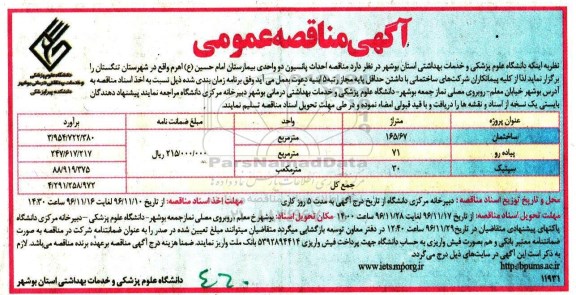 آگهی مناقصه عمومی
دانشگاه علوم پزشکی
نظربه اینکه دانشگاه علوم پزشکی و خدمات بهداشتی استان بوشهر در نظر دارد مناقصه احداث پانسیون دو واحدی بیمارستان امام حسین (ع) اهرم واقع در شهرستان تنگستان را
برگزار نماید لذا از کلیه پیمانکاران شرکت‌های ساختمانی با داشتن حداقل پایه مجاز رتبه۵ ابنیه دعوت بعمل می آید وفق برنامه زمان بندی شده ذیل نسبت به اخذ اسناد مناقصه به
آدرس بوشهر خیابان معلم- روبروی مصلی نماز جمعه بوشهر- دانشگاه علوم پزشکی و خدمات بهداشتی درمانی بوشهر دبیرخانه مرکزی دانشگاه مراجعه نمایند پیشنهاد دهندگان
بایستی یک نسخه از اسناد و نقشه ها را دریافت و با قید قبولی امضاء نموده و در طی مهلت تحویل اسناد مناقصه تسلیم نمایند.
عنوان پروژه متراژ واحد مبلغ ضمانت نامه برآورد
ساختمان ۱۶۵/۶۷ مترمربع ۳/۹۵۴/۷۲۲/۳۸۰
پیاده رو ۷۱ مترمربع ۲۱۵/۰۰۰/۰۰۰ ریال ۲۴۷/۶۱۷/۲۱۷
سپتیک ۳۰ مترمکعب ۸۸/۹۱۹/۳۷۵
جمع کل ۴/۲۹۱/۲۵۸/۹۷۲
ParsNamadData
محل و تاریخ توزیع اسناد مناقصه: دبیرخانه مرکزی دانشگاه از تاریخ درج آگهی به مدت ۵ روز کاری مهلت اخذ اسناد مناقصه: از تاریخ ۹۶/۱۱/۱۰ لغایت ۹۶/۱۱/۱۶ ساعت ۱۴:۳۰
مهلت تحویل اسناد مناقصه: از تاریخ ۹۶/۱۱/۱۷ لغایت ۹۶/۱۱/۲۸ ساعت ۱۴:۰۰ مکان تحویل اسناد: بوشهر خ معلم روبروی مصلی نماز جمعه بوشهر- دانشگاه علوم پزشکی - دبیرخانه مرکزی دانشگاه
پاکتهای پیشنهادی متقاضیان در تاریخ ۹۶/۱۱/۲۹ ساعت ۱۲:۴۰ در دفتر معاون توسعه بازگشایی میگردد متقاضیان میتوانند مبلغ تعیین شده در صدر را به عنوان ضمانتنامه شرکت در مناقصه به صورت
ضمانتنامه معتبر بانکی و هم بصورت فیش واریزی به حساب دانشگاه جهت پرداخت فیش واریزی ۵۳۹۲۸۹۴۴۱۴ بانک ملت واریز نمایند ضمنا هزینه درج آگهی مناقصه برعهده برنده مناقصه می‌باشد. لازم
به ذکر است این آگهی در سایت‌های ذیل درج می‌گردد.
http://bpums.ac.ir www.iets.mporg.ir
۱۱۹۳۱ ۴۶۰ دانشگاه علوم پزشکی و خدمات بهداشتی استان بوشهر